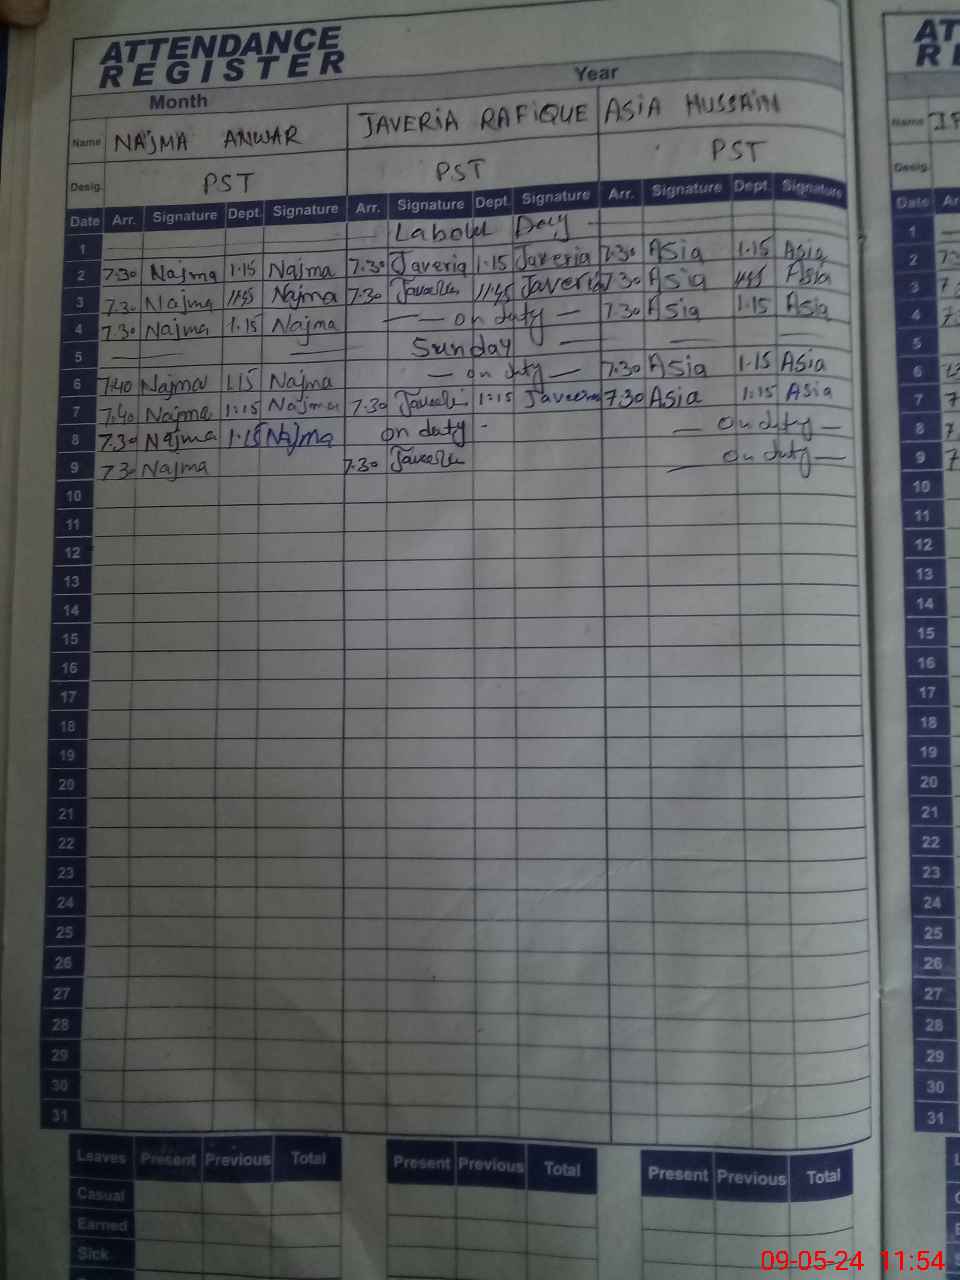 ATTENDANCE
REGISTER
Month Year
Name NAJMA ANWAR JAVERIA RAFIQUE ASIA HUSSAIN
Desig. PST PST PST
Date Arr. Signature Dept. Signature Arr. Signature Dept. Signature Arr. Signature Dept. Signature
1 Labour Day
2 7.30 Najma 1.15 Najma 7.30 Javeria 1.15 Javeria 7.30 Asia 1.15 Asia
3 7.30 Najma 11.45 Najma 7.30 Javeria 11.45 Javeria 7.30 Asia 11.45 Asia
4 7.30 Najma 1.15 Najma — on duty — 7.30 Asia 1.15 Asia
5 Sunday
6 7.40 Najma 1.15 Najma — on duty — 7.30 Asia 1.15 Asia
7 7.40 Najma 1:15 Najma 7.30 Javeria 1:15 Javeria 7.30 Asia 1:15 Asia
8 7.30 Najma 1.15 Najma on duty - — on duty —
9 7.30 Najma 7.30 Javeria — on duty —
10
11
12
13
14
15
16
17
18
19
20
21
22
23
24
25
26
27
28
29
30
31
Leaves Present Previous Total Present Previous Total Present Previous Total
Casual
Earned
Sick
Name
Desig.
Date
1
2
3
4
5
6
7
8
9
10
11
12
13
14
15
16
17
18
19
20
21
22
23
24
25
26
27
28
29
30
31
09-05-24 11:54